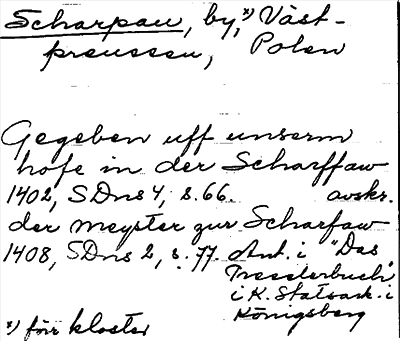 Scharpau, by,ˣ⁾ Väst-
preussen, Polen
Gegeben uff unserm
hofe in der Scharffaw
1402, SDns 4, s. 66. avskr.
der meyster zur Scharfaw
1408, SDns 2, s. 77. Ant. i "Das
Tresslerbuch"
i K. Statsark. i
Königsberg
ˣ⁾ förr kloster